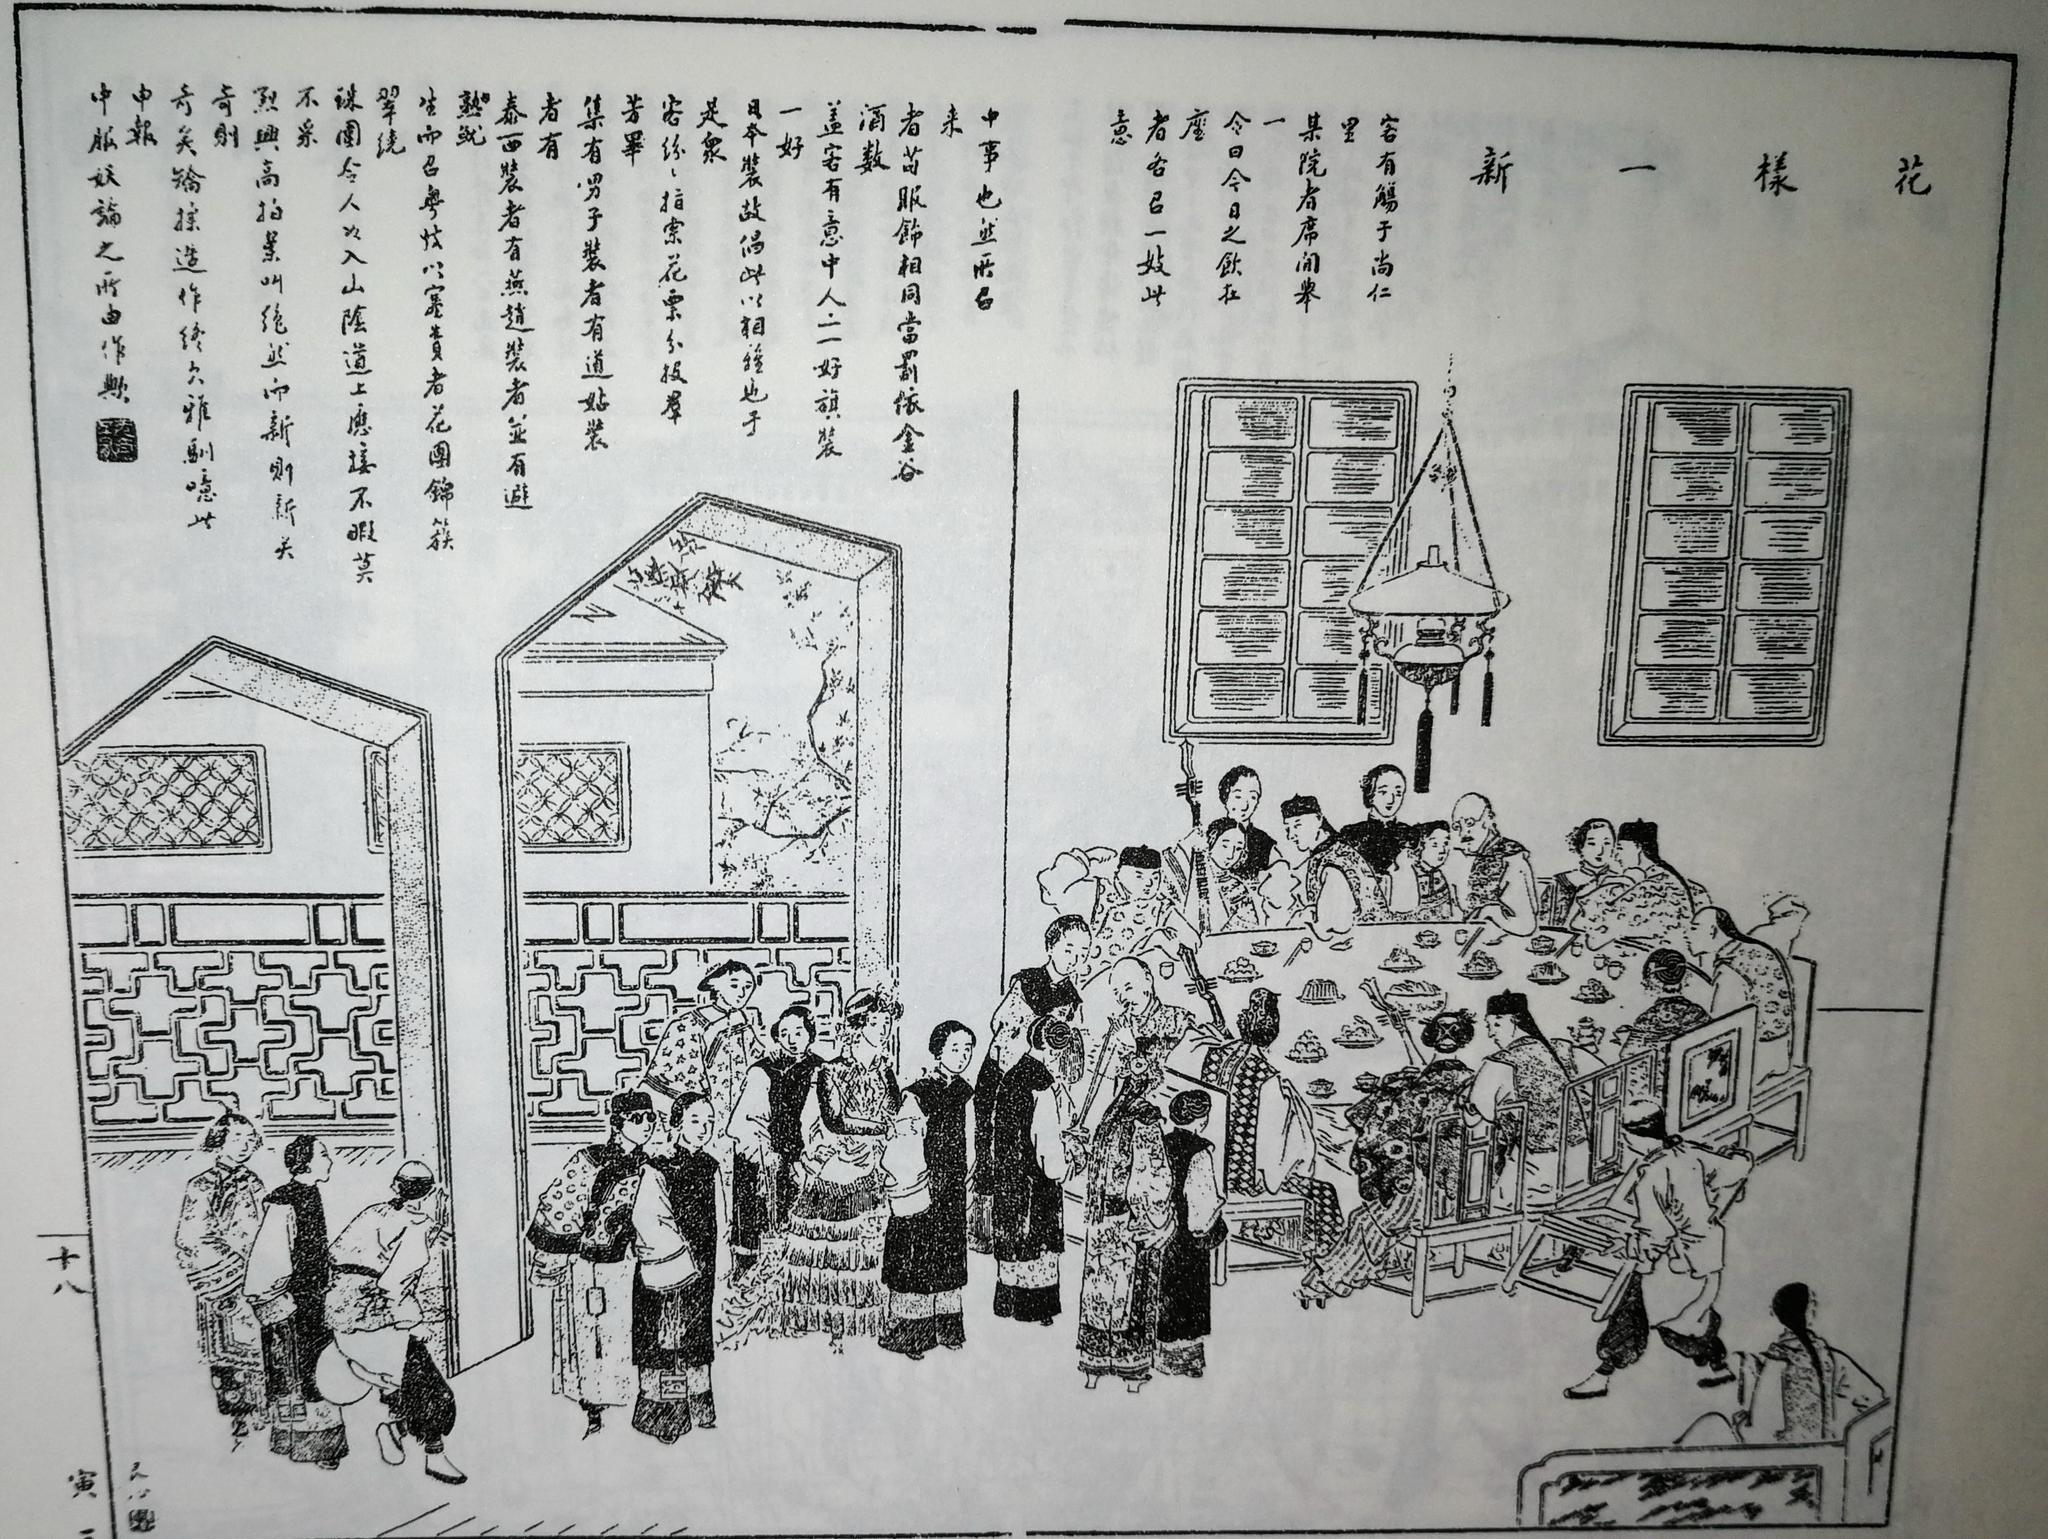 花樣一新
客有觴于尚仁
里
某院者席間舉
一
令曰今日之飲在
座
者各召一妓此
意
中事也然所召
来
者苟服飾相同當罰依金谷
酒数
蓋客有意中人二一好旗裝
一好
日本裝故倡此以相難也于
是衆
客紛〻指索花票分投羣
芳畢
集有男子裝者有道姑裝
者有
泰西裝者有燕趙裝者並有避
熟就
生而召粤妓以塞責者花團錦簇
翠繞
珠圍令人如入山陰道上應接不暇莫
不采
烈興高拍案叫絶然而新則新矣
奇則
奇矣矯揉造作終欠雅馴噫此
申報
中服妖論之所由作歟
十八
寅